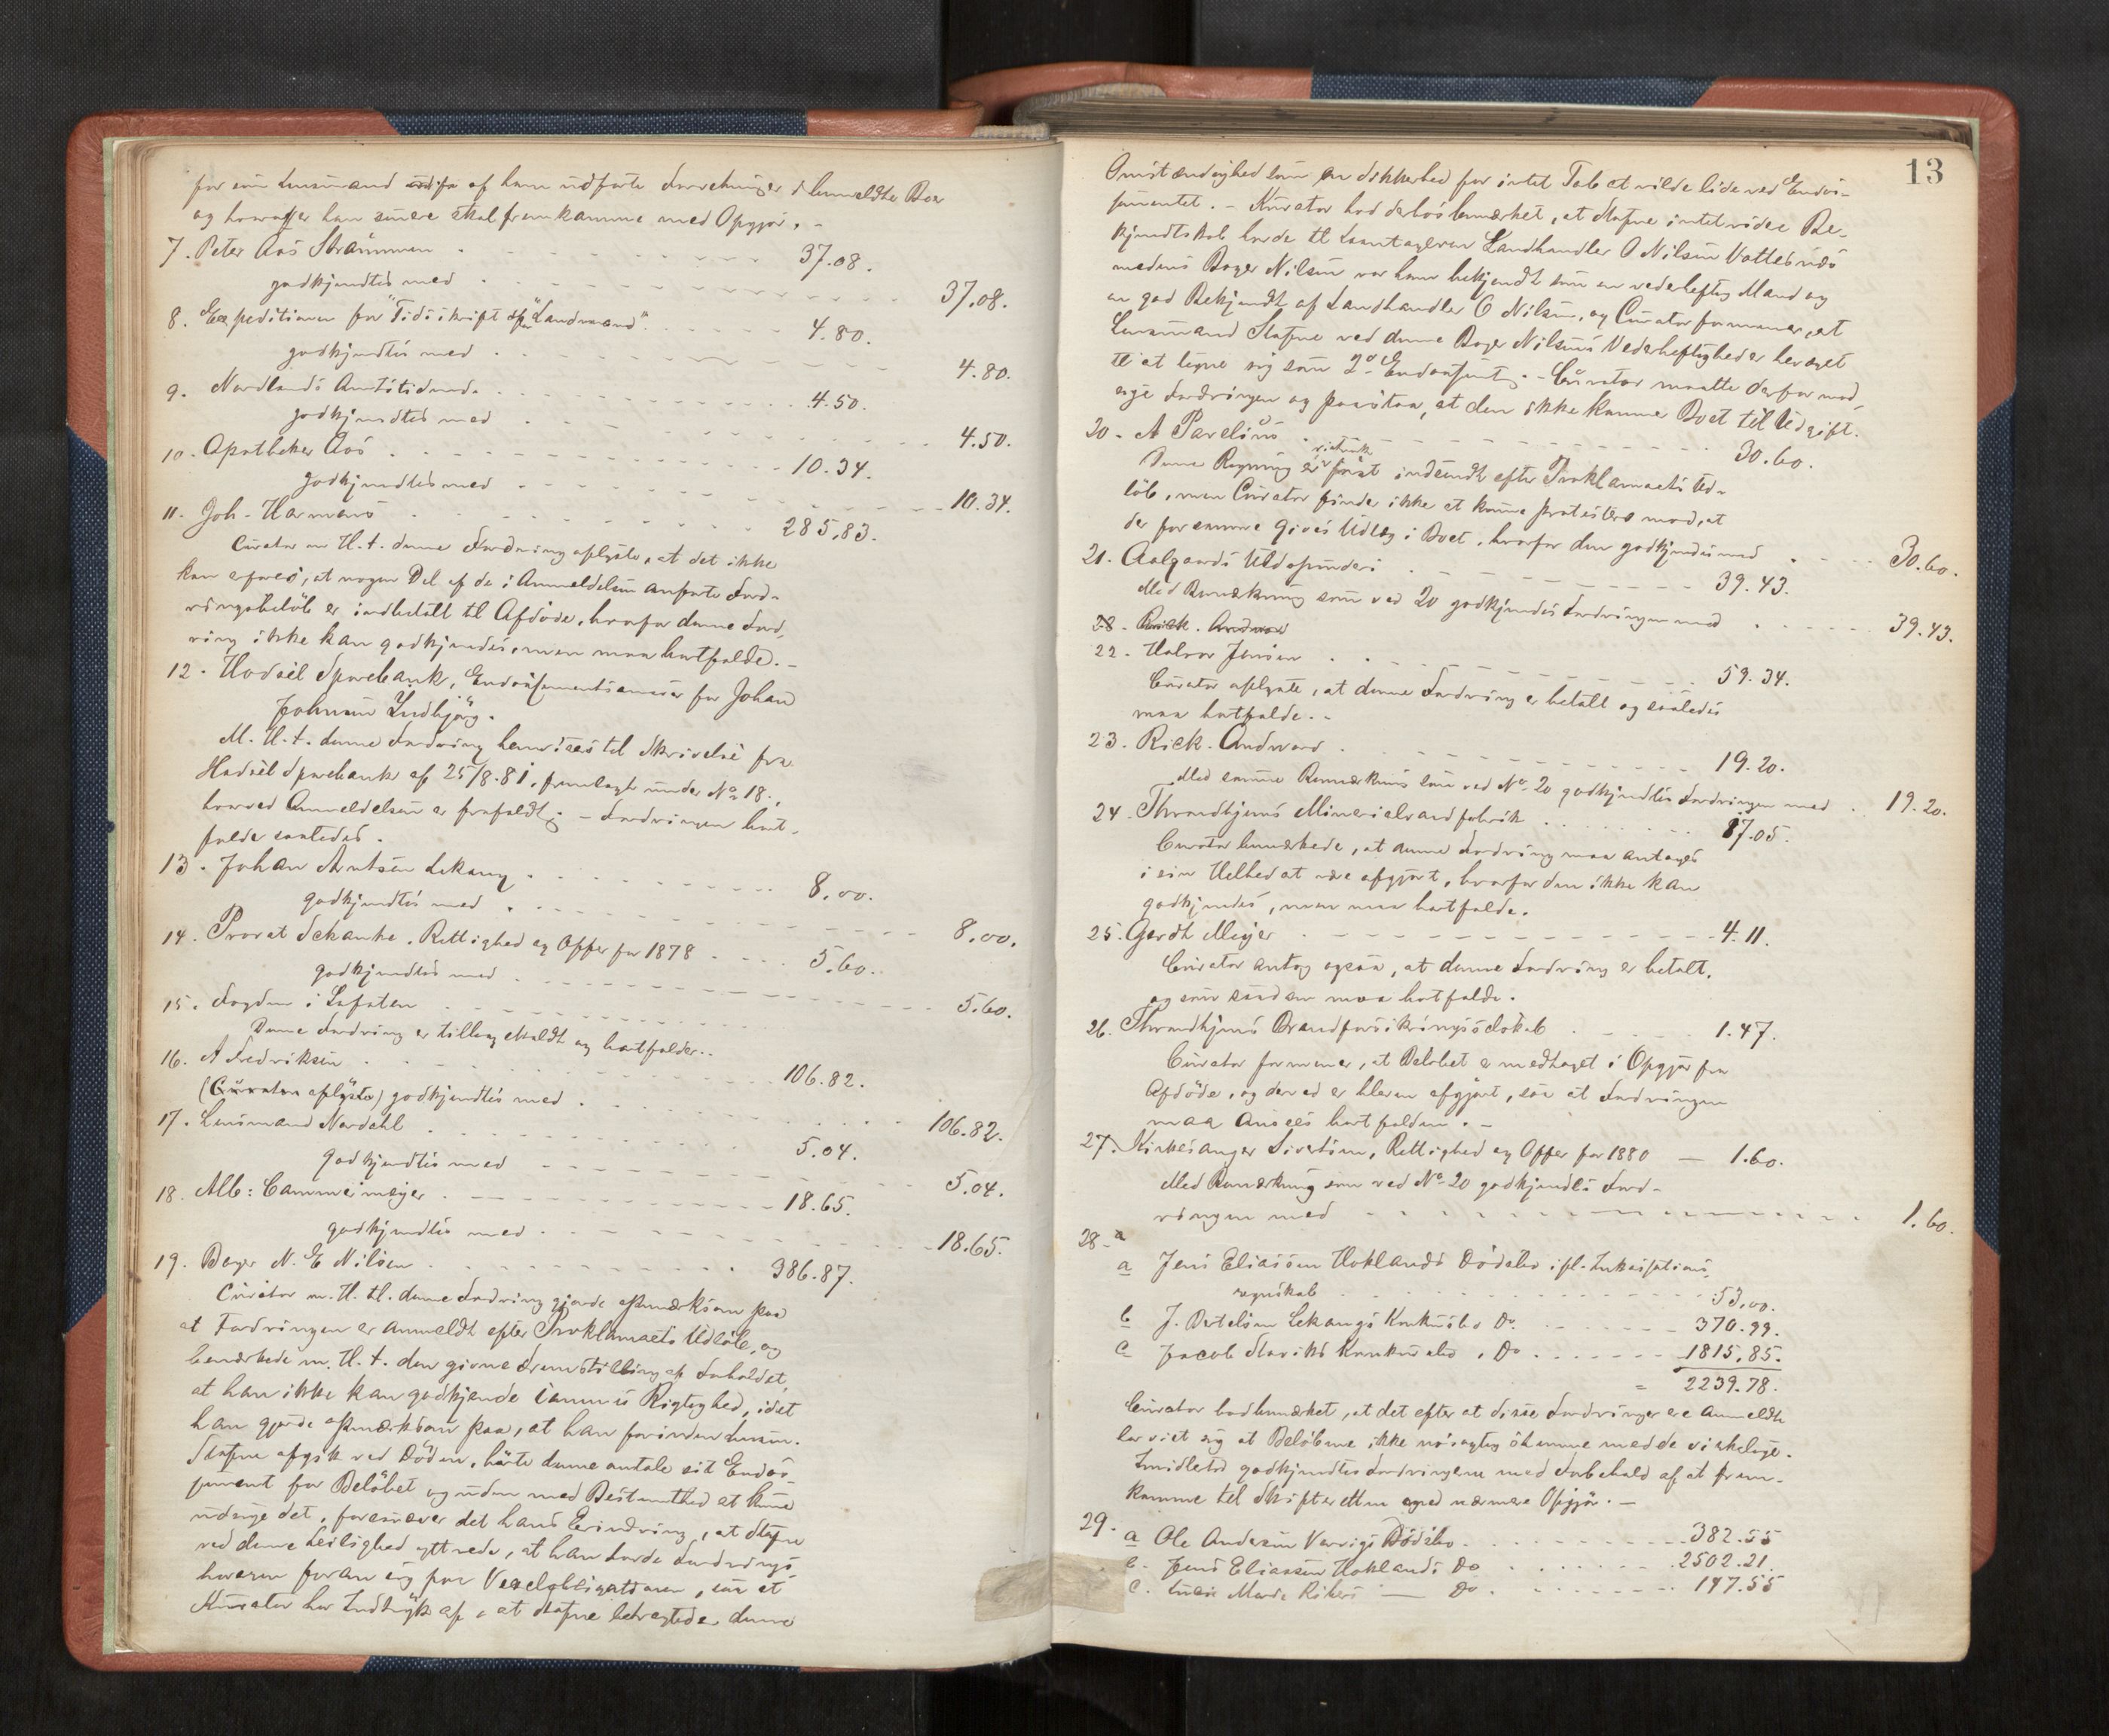 for som Lensmand af ham udførte Forretninger i bemeldte Boer
og hvorefter han senere skal fremkomme med Opgjør. -
7. Peter Aas Strømmen - - - 37.08.
godkjendtes med - - - 37.08.
8. Expeditionen for "Tidsskrift for Landmænd". - - - 4.80.
godkjendtes med - - - 4.80.
9. Nordlands Amtstidende - - - 4.50.
godkjendtes med - - - 4.50.
10. Apotheker Aas - - - 10.34.
godkjendtes med - - - 10.34.
11. Joh. Harmens - - - 285,83.
Curator m. H. t. denne Fordring oplyste, at det ikke
kan sees, at nogen Del af de i Anmeldelsen anførte Ford-
ringsbeløb er indbetalt til Afdøde, hvorfor denne Ford-
ring ikke kan godkjendes, men maa bortfalde. -
12. Hadsel Sparebank, Endossementsansvar for Johan
Johnsen Indbjørg.
M. H. t. denne Fordring henvises til Skrivelse fra
Hadsel Sparebank af 25/8-81, fremlagt under No 18.,
hvorved Anmeldelsen er frafaldt; - Fordringen bort-
falder saaledes.
13. Johan Arntsen Lekang - - - 8,00.
godkjendtes med - - - 8,00.
14. Provst Schanke. Rettighed og Offer for 1878 - - - 5.60.
godkjendtes med - - - 5.60.
15. Fogden i Lofoten - - -
Denne Fordring er tilbagekaldt og bortfalder. -
16. A Fredriksen - - - 106.82.
(Curator oplyste) godkjendtes med - - - 106.82.
17. Lensmand Nordahl - - - 5.04.
godkjendtes med - - - 5.04.
18. Alb: Cammermeyer - - - 18.65.
godkjendtes med - - - 18.65.
19. Bager N. E Nilsen - - - 386.87.
Curator m. H. t. denne Fordring gjorde opmærksom paa
at Fordringen er anmeldt efter Proklamaets Udløb, og
bemærkede m. H. t. den givne Fremstilling af Forholdet,
at han ikke kan godkjende sammes Rigtighed, idet
han gjorde opmærksom paa, at han forinden Lensm.
Stafne afgik ved Døden, hørte denne omtale sit Endos-
sement for Beløbet og uden med Bestemthed at kunne
udsige det, foresvæver det hans Erindring, at Stafne
ved denne Leilighed yttrede, at han havde Fordrings-
haveren foran sig paa Vexelobligationen, saa at
Kurator har Indtryk af, at Stafne betragtede denne
13
Omstændighed som en Sikkerhed for intet Tab at vilde lide ved Endos-
sementet. - Kurator har derhos bemærket, at Stafne intet videre Be-
kjendtskab havde til Laantageren Landhandler O Nilsen Vottesnæs
medens Bager Nilsen var ham bekjendt som en vederheftig Mand og
en god Bekjendt af Landhandler O Nilsen, og Curator formener, at
Lensmand Stafne ved denne Bager Nilsens Vederheftighed er bevæget
til at tegne sig som 2o Endossent. - Curator maatte derfor mod-
sige Fordringen og paastaa, at den ikke kommer Boet til Udgift.
20. A Parelius - - - 30.60.
Denne Regning er vistnok først indsendt efter Proklamaets Ud-
løb, men Curator finder ikke at kunne protestere mod, at
der for samme gives Udlæg i Boet, hvorfor den godkjendes med - - - 30.60.
21. Aalgaards Uldspinderi - - - 39.43.
Med Bemærkning som ved 20 godkjendes Fordringen med - - - 39.43.
28. Rick. Andvord
22. Halvor Jensen - - - 59.34.
Curator oplyste, at denne Fordring er betalt og saaledes
maa bortfalde. -
23. Rick. Andvord - - - 19.20.
Med samme Bemærkning som ved No 20 godkjendtes Fordringen med - 19.20.
24. Throndhjems Mineralvandfabrik - - - 87.05.
Curator bemærkede, at denne Fordring maa antages
i sin Helhed at være afgjort, hvorfor den ikke kan
godkjendes, men maa bortfalde.
25. Gerdt Meyer - - - 4.11.
Curator antog ogsaa, at denne Fordring er betalt,
og som saadan maa bortfalde.
26. Throndhjems Brandforsikringsselskab - - - 1.47.
Curator formener, at Beløbet er medtaget i Opgjør fra
Afdøde, og derved er bleven afgjort, saa at Fordringen
maa ansees bortfalden. -
27. Kirkesanger Sivertsen, Rettighed og Offer for 1880 — 1.60.
Med Bemærkning som ved No 20 godkjendes Ford-
ringen med - - - 1.60
28 -
a Jens Eliassen Hoklands Dødsbo ifl. Inkassations-
regnskab - - - 53,00.
b J. Bertelsen Lekangs Konkursbo Do. - - - 370.99.
c Jacob Slaviks Konkursbo, Do - - - 1815.85.
= 2239.78.
Curator har bemærket, at det efter at disse Fordringer ere anmeldte
har vist sig at Beløbene ikke nøiagtig stemme med de virkelige.
Imidlertid godkjendtes Fordringerne med Forbehold af at frem-
komme til Skifteretten med nærmere Opgjør. -
29.
a Ole Andersen Vervigs Dødsbo - - - 382.55
b. Jens Eliassen Hoklands Do - - - 2502.21.
c. Marde — Do - - - 147.55